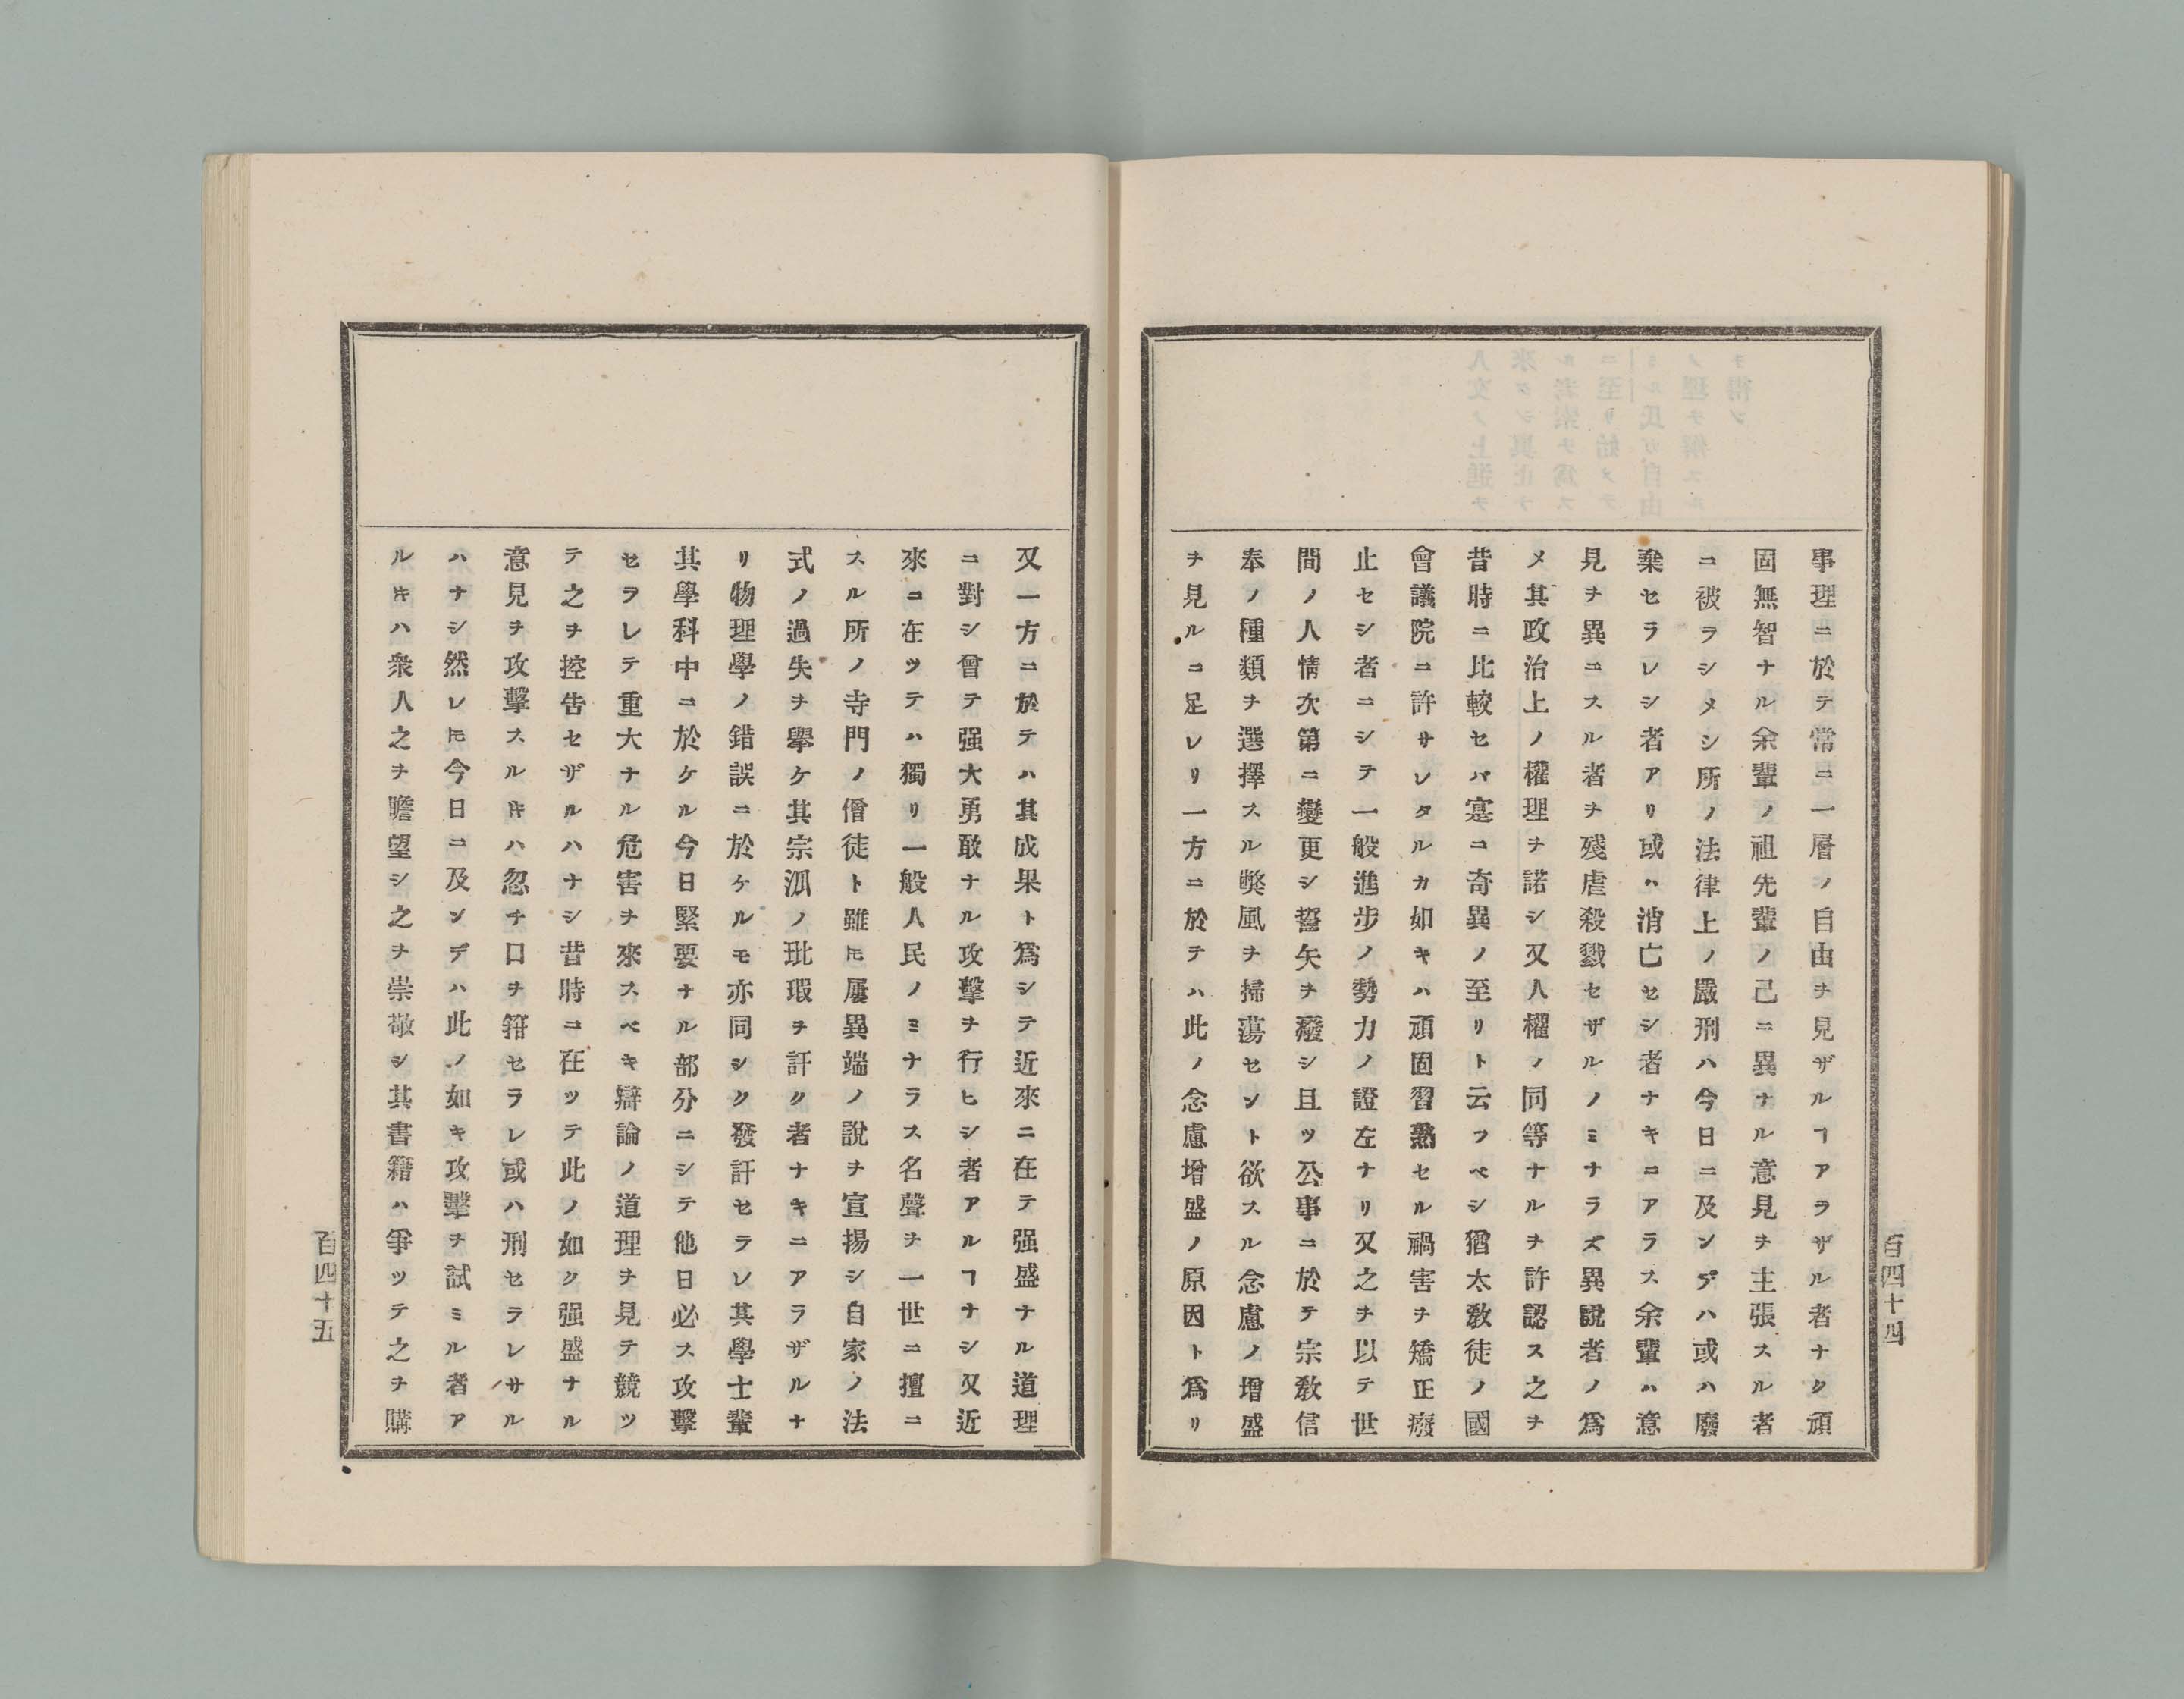 事理ニ於テ常ニ一層ノ自由ヲ見ザルヿアラザル者ナク頑
固無智ナル余輩ノ祖先輩ノ己ニ異ナル意見ヲ主張スル者
ニ被ラシメシ所ノ法律上ノ嚴刑ハ今日ニ及ンデハ或ハ廢
棄セラレシ者アリ或ハ消亡セシ者ナキニアラス余輩ハ意
見ヲ異ニスル者ヲ殘虐殺戮セザルノミナラズ異說者ノ爲
メ其政治上ノ權理ヲ諾シ又人權ノ同等ナルヲ許認ス之ヲ
昔時ニ比較セバ寔ニ奇異ノ至リト云フベシ猶太敎徒ノ國
會議院ニ許サレタルカ如キハ頑固習熟セル禍害ヲ矯正癈
止セシ者ニシテ一般進步ノ勢力ノ證左ナリ又之ヲ以テ世
間ノ人情次第ニ變更シ誓矢ヲ癈シ且ツ公事ニ於テ宗敎信
奉ノ種類ヲ選擇スル弊風ヲ掃蕩セント欲スル念慮ノ增盛
ヲ見ルニ足レリ一方ニ於テハ此ノ念慮增盛ノ原因ト爲リ
百四十四
又一方ニ於テハ其成果ト爲シテ近來ニ在テ强盛ナル道理
ニ對シ曾テ强大勇敢ナル攻擊ヲ行ヒシ者アルヿナシ又近
來ニ在ツテハ獨リ一般人民ノミナラス名聲ヲ一世ニ擅ニ
スル所ノ寺門ノ僧徒ト雖𪜈屢異端ノ說ヲ宣揚シ自家ノ法
式ノ過失ヲ擧ケ其宗派ノ玼瑕ヲ訐ク者ナキニアラザルナ
リ物理學ノ錯誤ニ於ケルモ亦同シク發訐セラレ其學士輩
其學科中ニ於ケル今日緊要ナル部分ニシテ他日必ス攻擊
セラレテ重大ナル危害ヲ來スベキ辯論ノ道理ヲ見テ競ツ
テ之ヲ控告セザルハナシ昔時ニ在ツテ此ノ如ク强盛ナル
意見ヲ攻擊スルトキハ忽チ口ヲ箝セラレ或ハ刑セラレサル
ハナシ然レ𪜈今日ニ及ンデハ此ノ如キ攻擊ヲ試ミル者ア
ルトキハ衆人之ヲ瞻望シ之ヲ崇敬シ其書籍ハ爭ツテ之ヲ購
百四十五